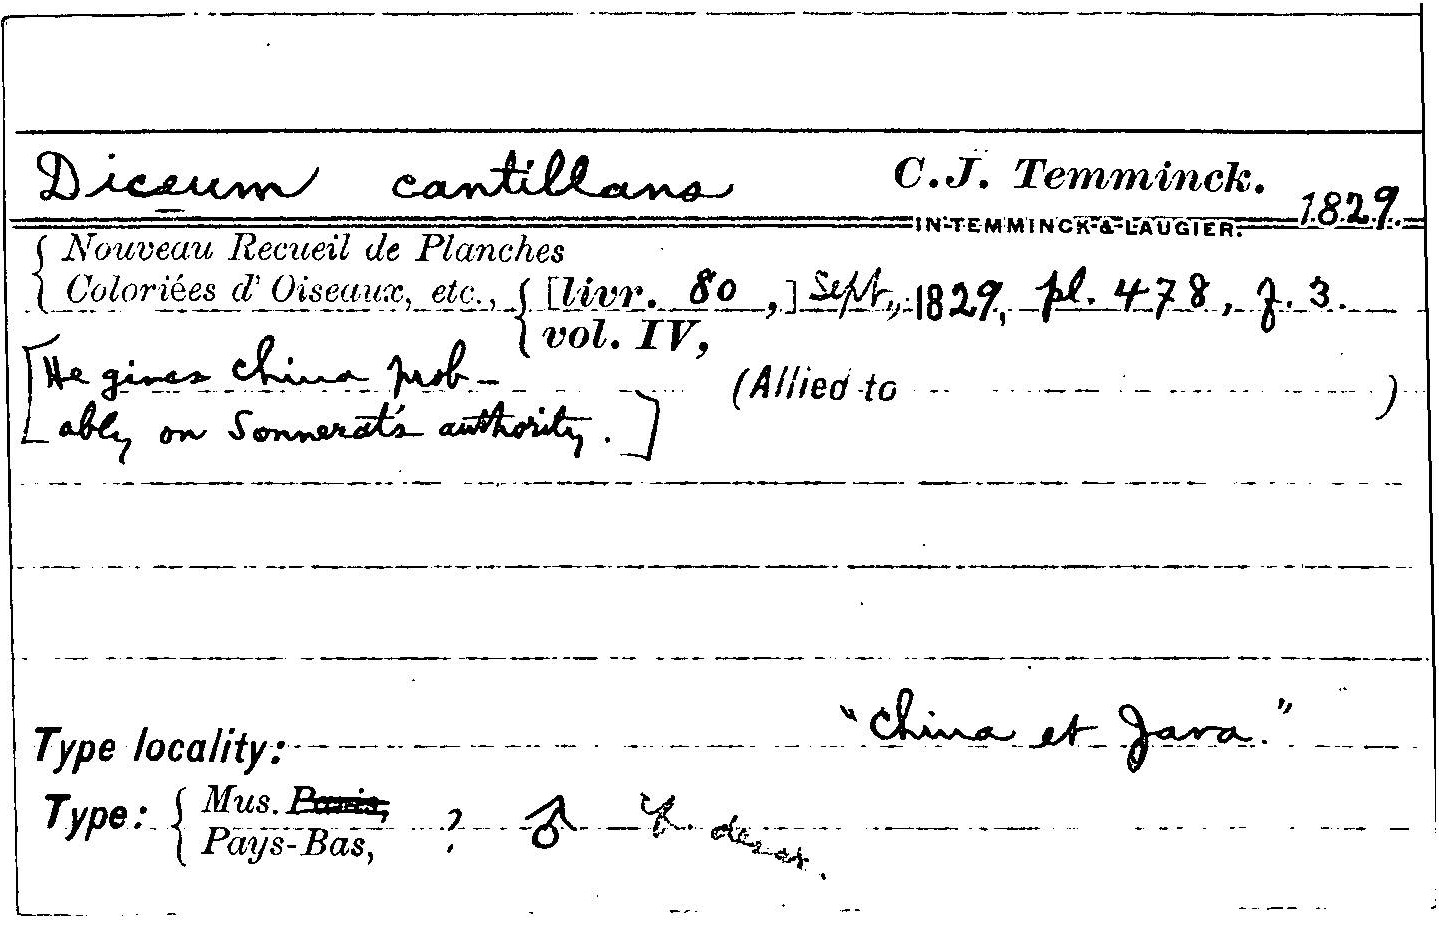 Diceum cantillans C.J. Temminck. 1829.
IN TEMMINCK & LAUGIER.
Nouveau Recueil de Planches
Coloriées d' Oiseaux, etc., [livr. 80,] Sept., 1829, pl. 478, f. 3.
vol. IV,
[He gives China prob-
ably on Sonnerat's authority.]
(Allied to )
Type locality: "China et Java."
Type: Mus. Paris,
Pays-Bas, ? ♂